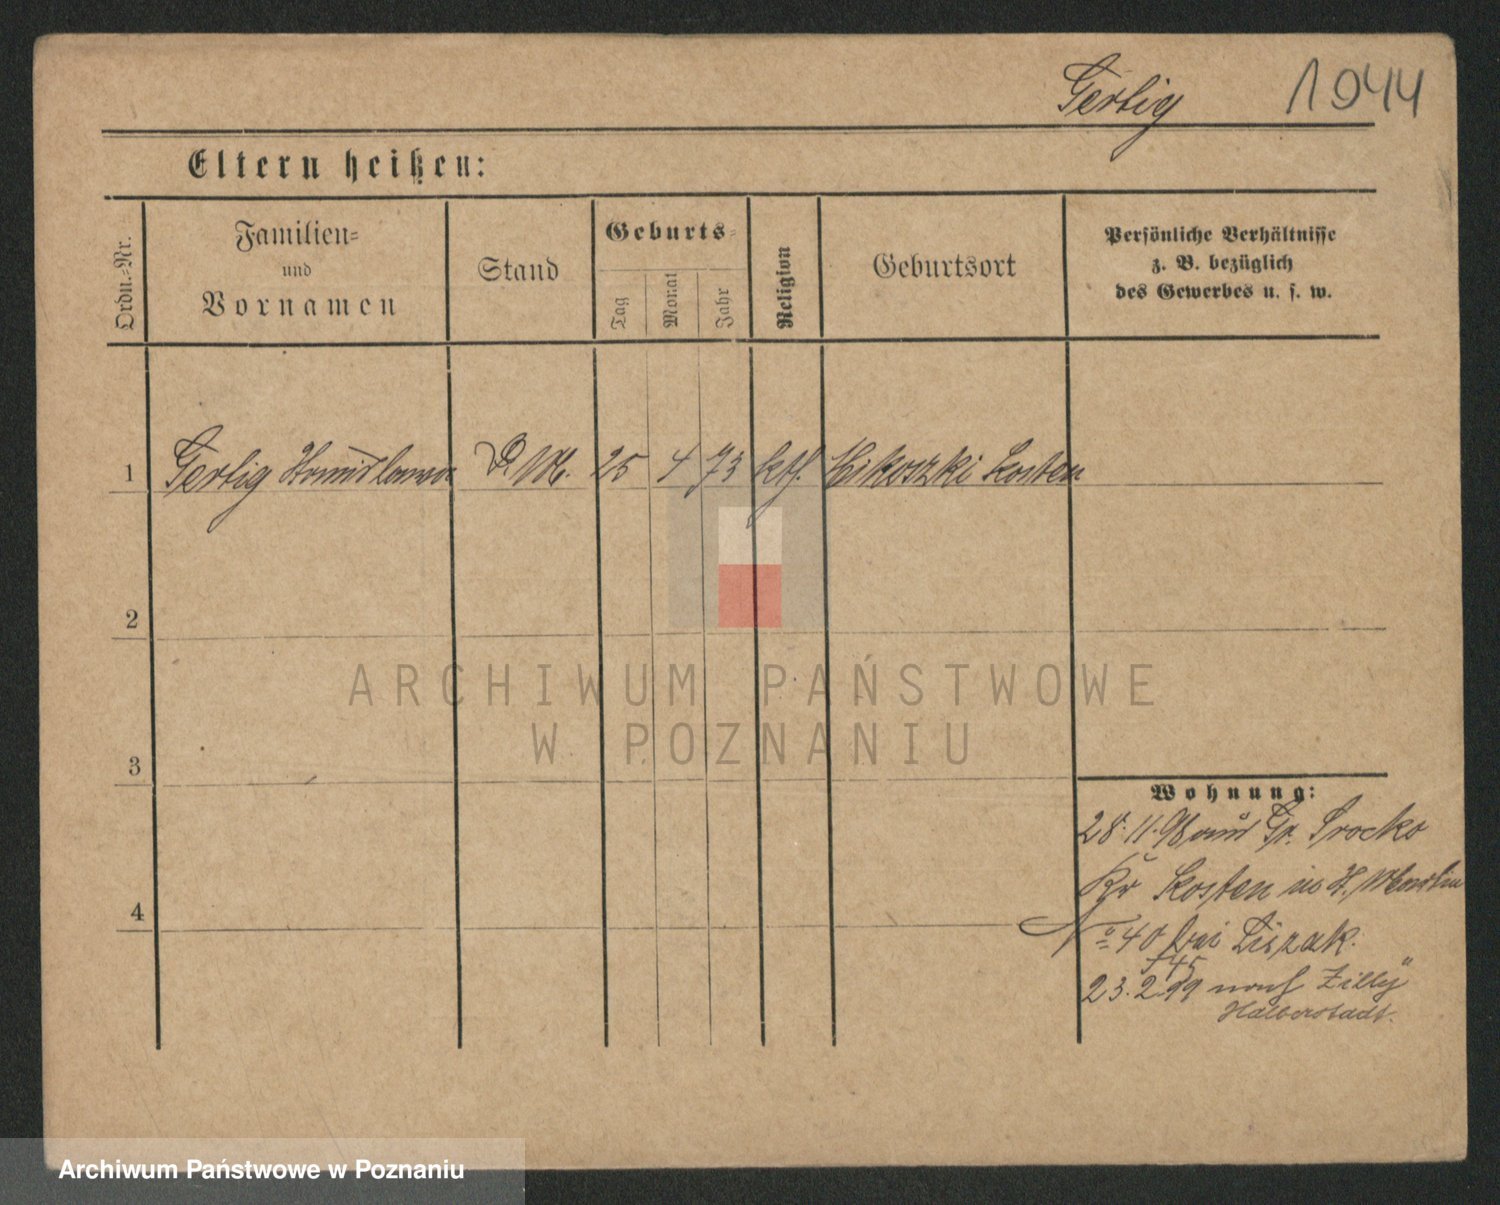 Gertig 1944
Eltern heißen:
Ordn.-Nr.
Familien-
und
Vornamen
Stand
Geburts-
Tag
Monat
Jahr
Religion
Geburtsort
Persönliche Verhältnisse
z. B. bezüglich
des Gewerbes u. s. w.
1 Gertig D. M. 25 4 73 kth. Kosten
2
3
4
Wohnung:
28.11.98 Gr.
Kr Kosten in St. Martin
No 40 bei
f 45
23.2.99 nach Zilly
Halberstadt.
ARCHIWUM PAŃSTWOWE
W POZNANIU
Archiwum Państwowe w Poznaniu